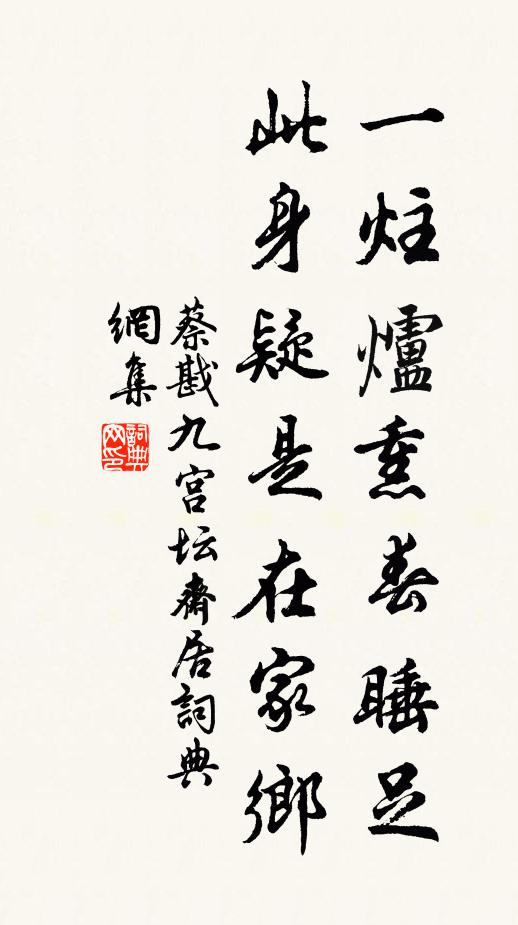 一炷爐熏春睡足
此身疑是在家鄉
蔡戡九宫坛齋居詞典
網集
詞典
网印